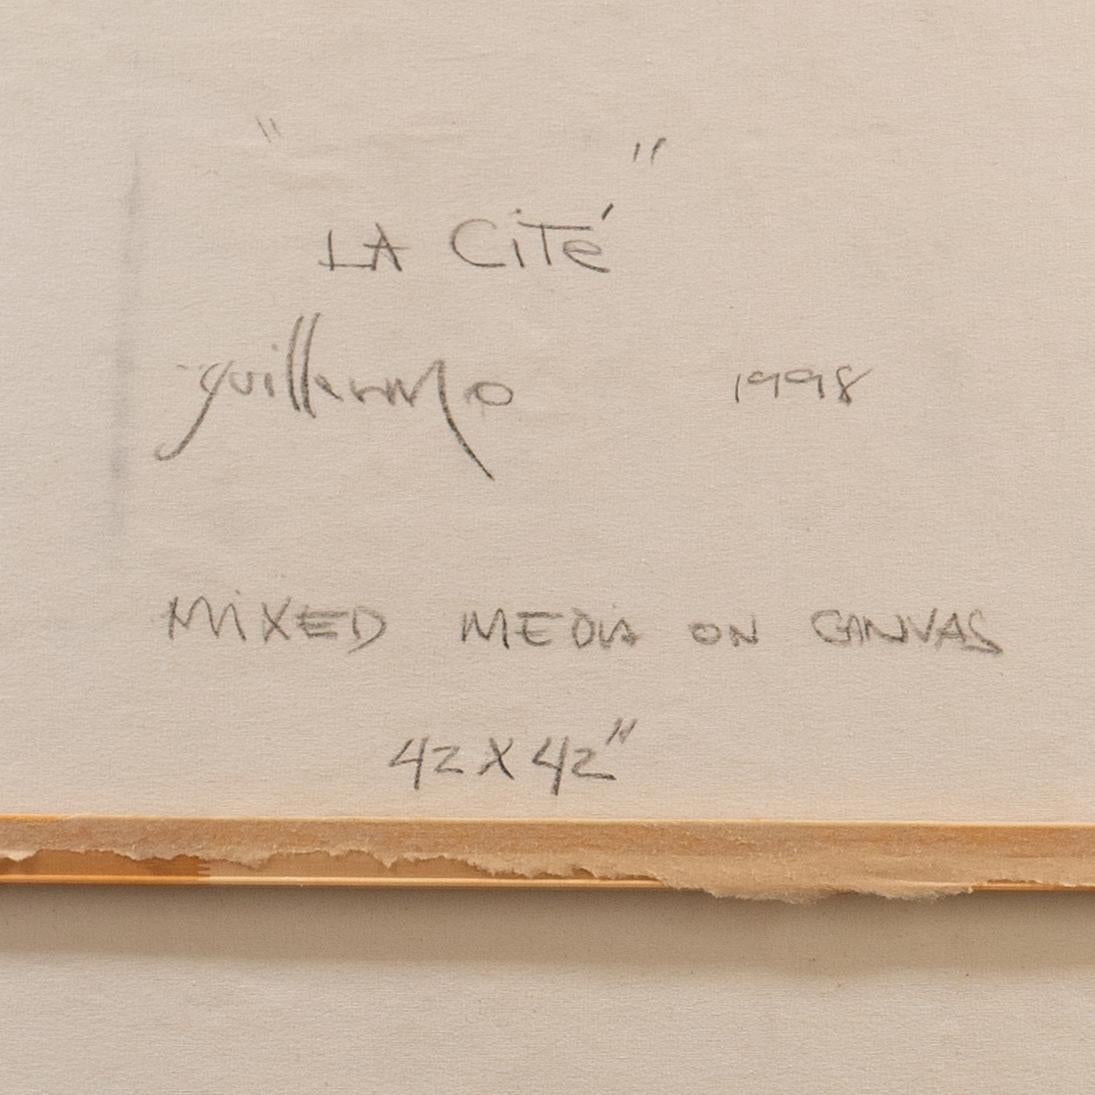 "LA CiTé"
guillermo 1998
MiXED MEDiA ON CANVAS
42 X 42"